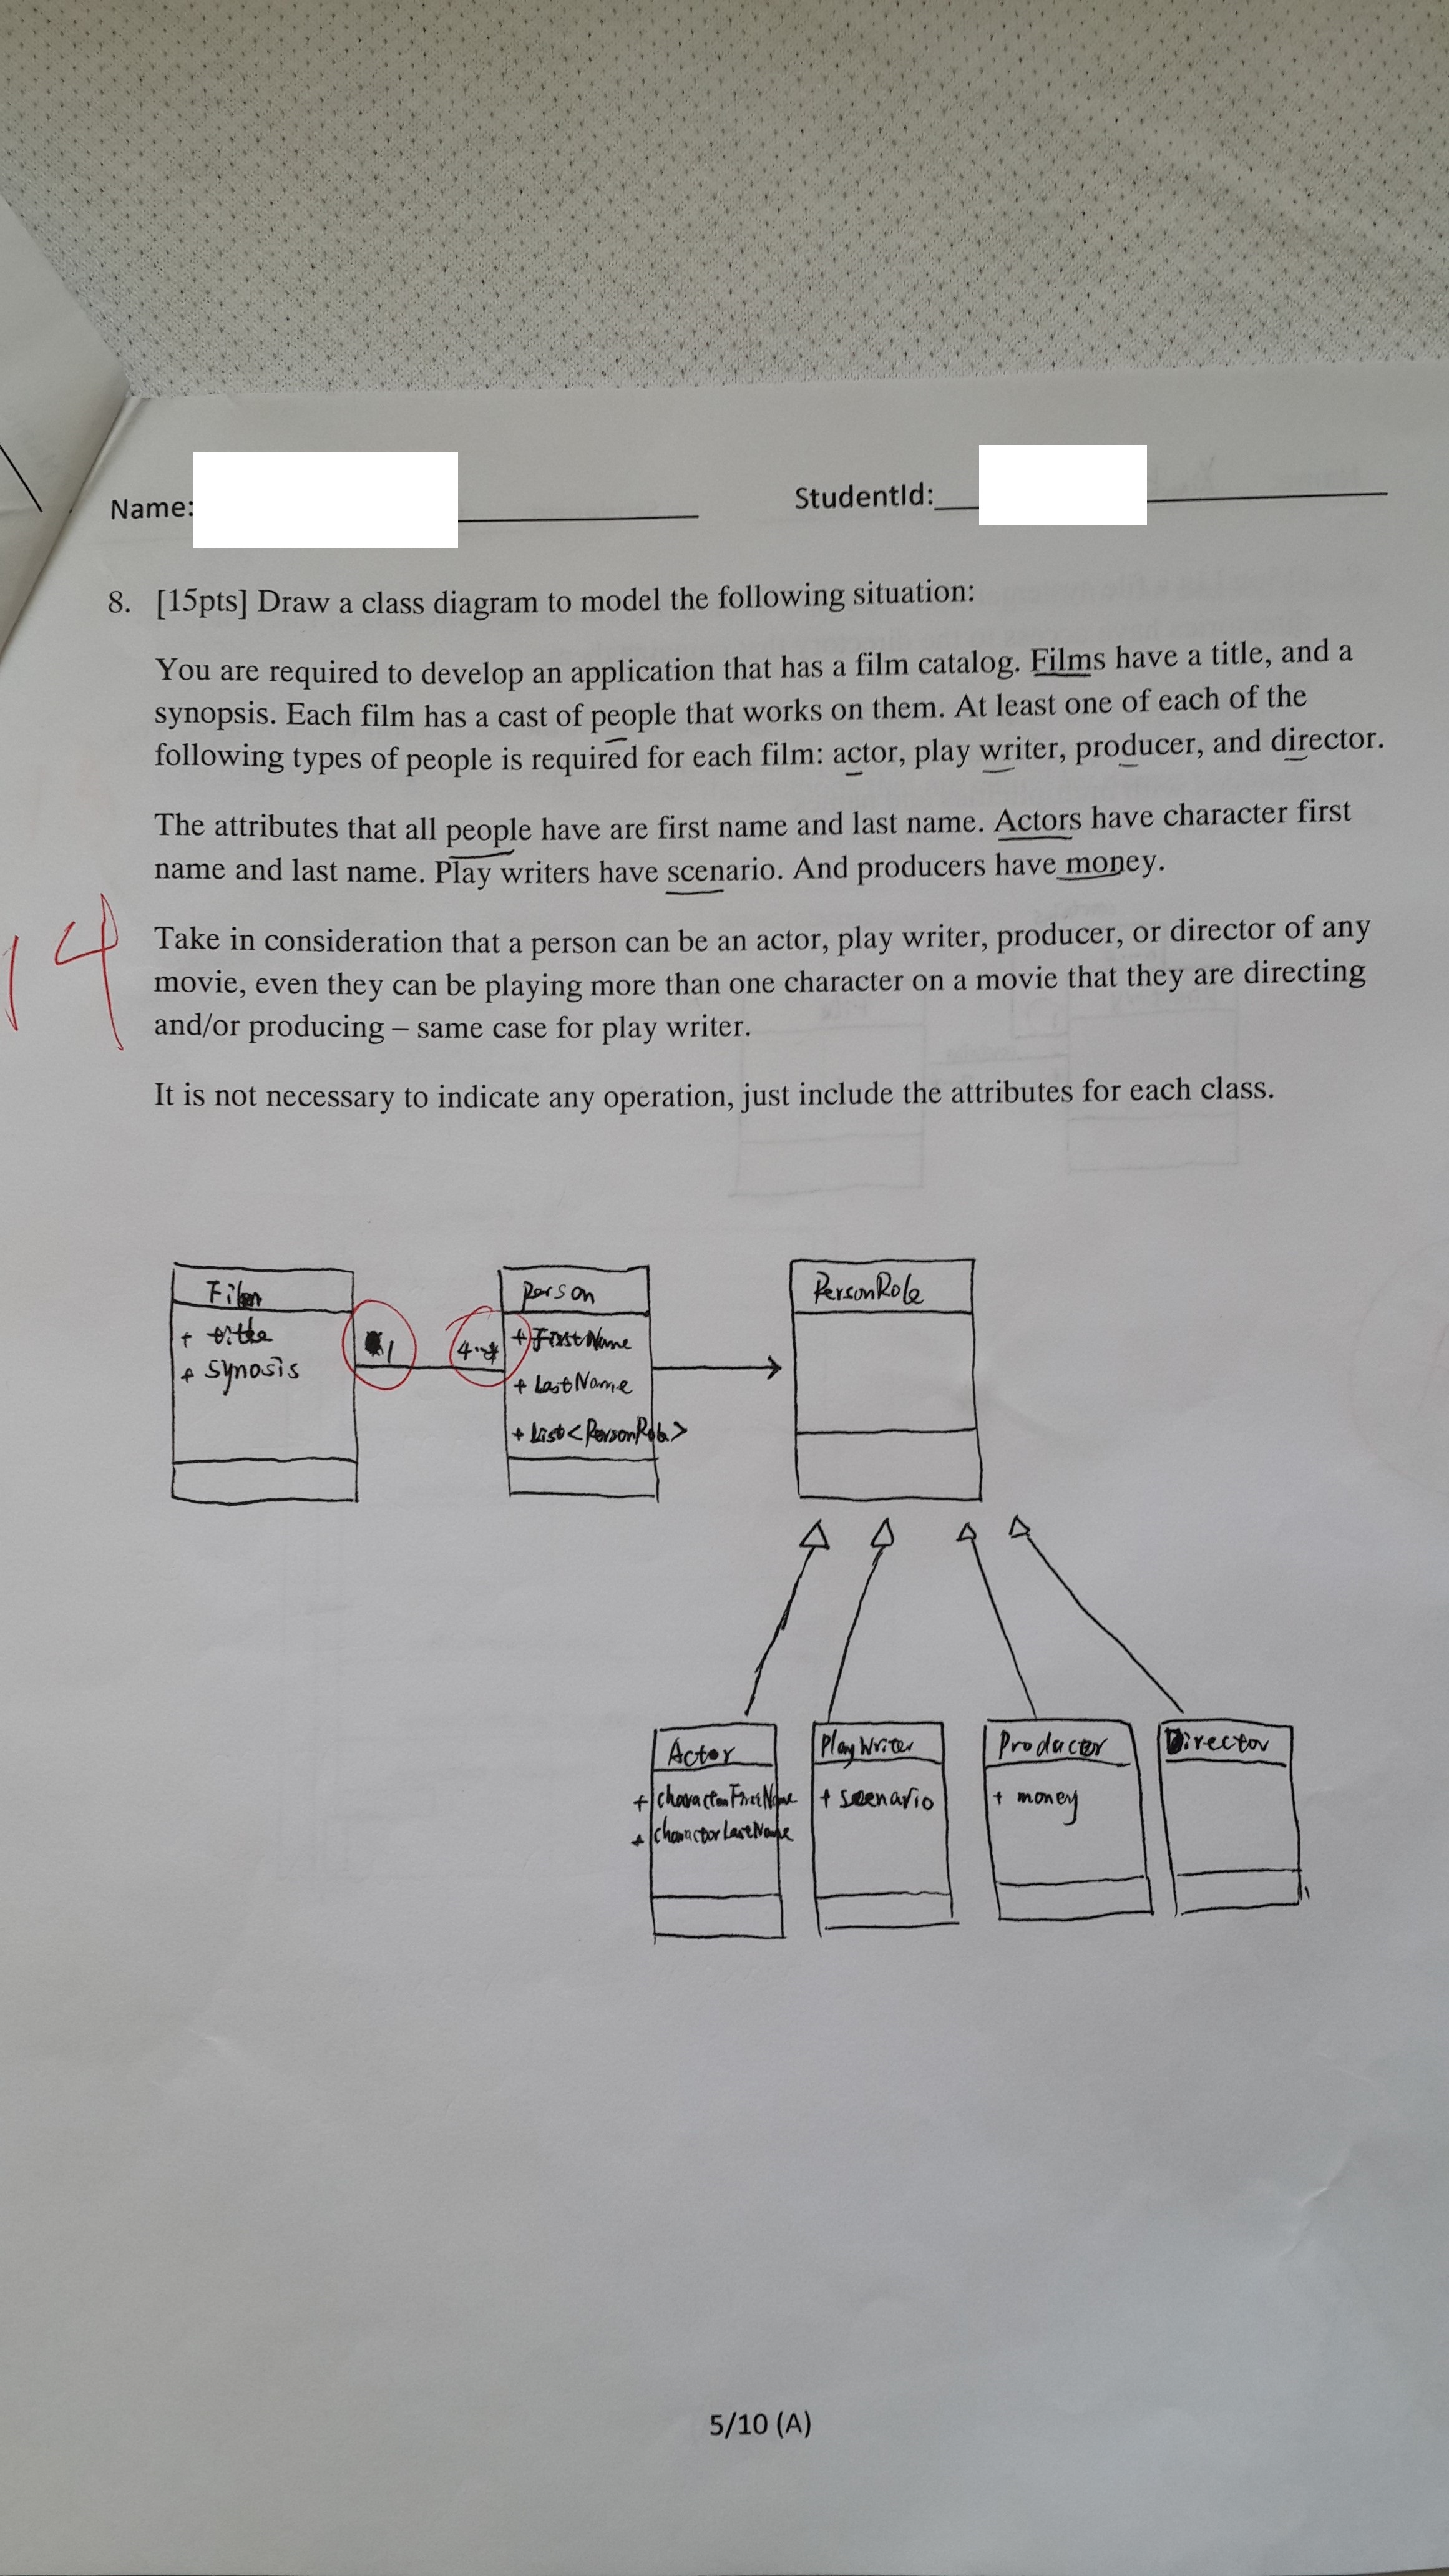 Name:
StudentId:
8. [15pts] Draw a class diagram to model the following situation:
You are required to develop an application that has a film catalog. Films have a title, and a
synopsis. Each film has a cast of people that works on them. At least one of each of the
following types of people is required for each film: actor, play writer, producer, and director.
The attributes that all people have are first name and last name. Actors have character first
name and last name. Play writers have scenario. And producers have money.
14
Take in consideration that a person can be an actor, play writer, producer, or director of any
movie, even they can be playing more than one character on a movie that they are directing
and/or producing – same case for play writer.
It is not necessary to indicate any operation, just include the attributes for each class.
Film
+ title
+ synosis
1
4..*
Person
+ FirstName
+ LastName
+ List<PersonRole>
PersonRole
Actor
+ characterFirstName
+ characterLastName
PlayWriter
+ scenario
Producer
+ money
Director
5/10 (A)